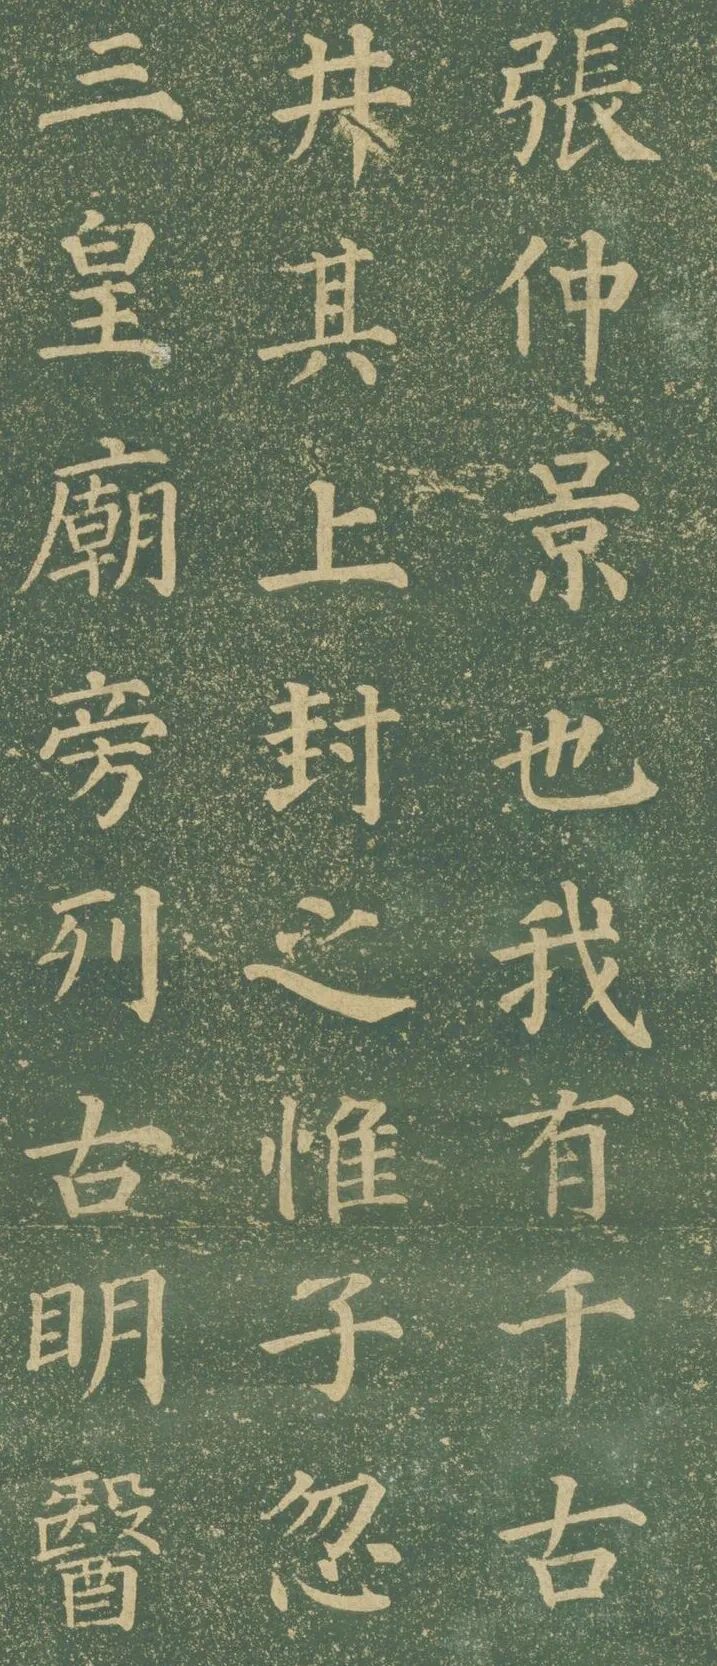 張仲景也我有千古
井其上封之惟子忽
三皇廟旁列古眀醫